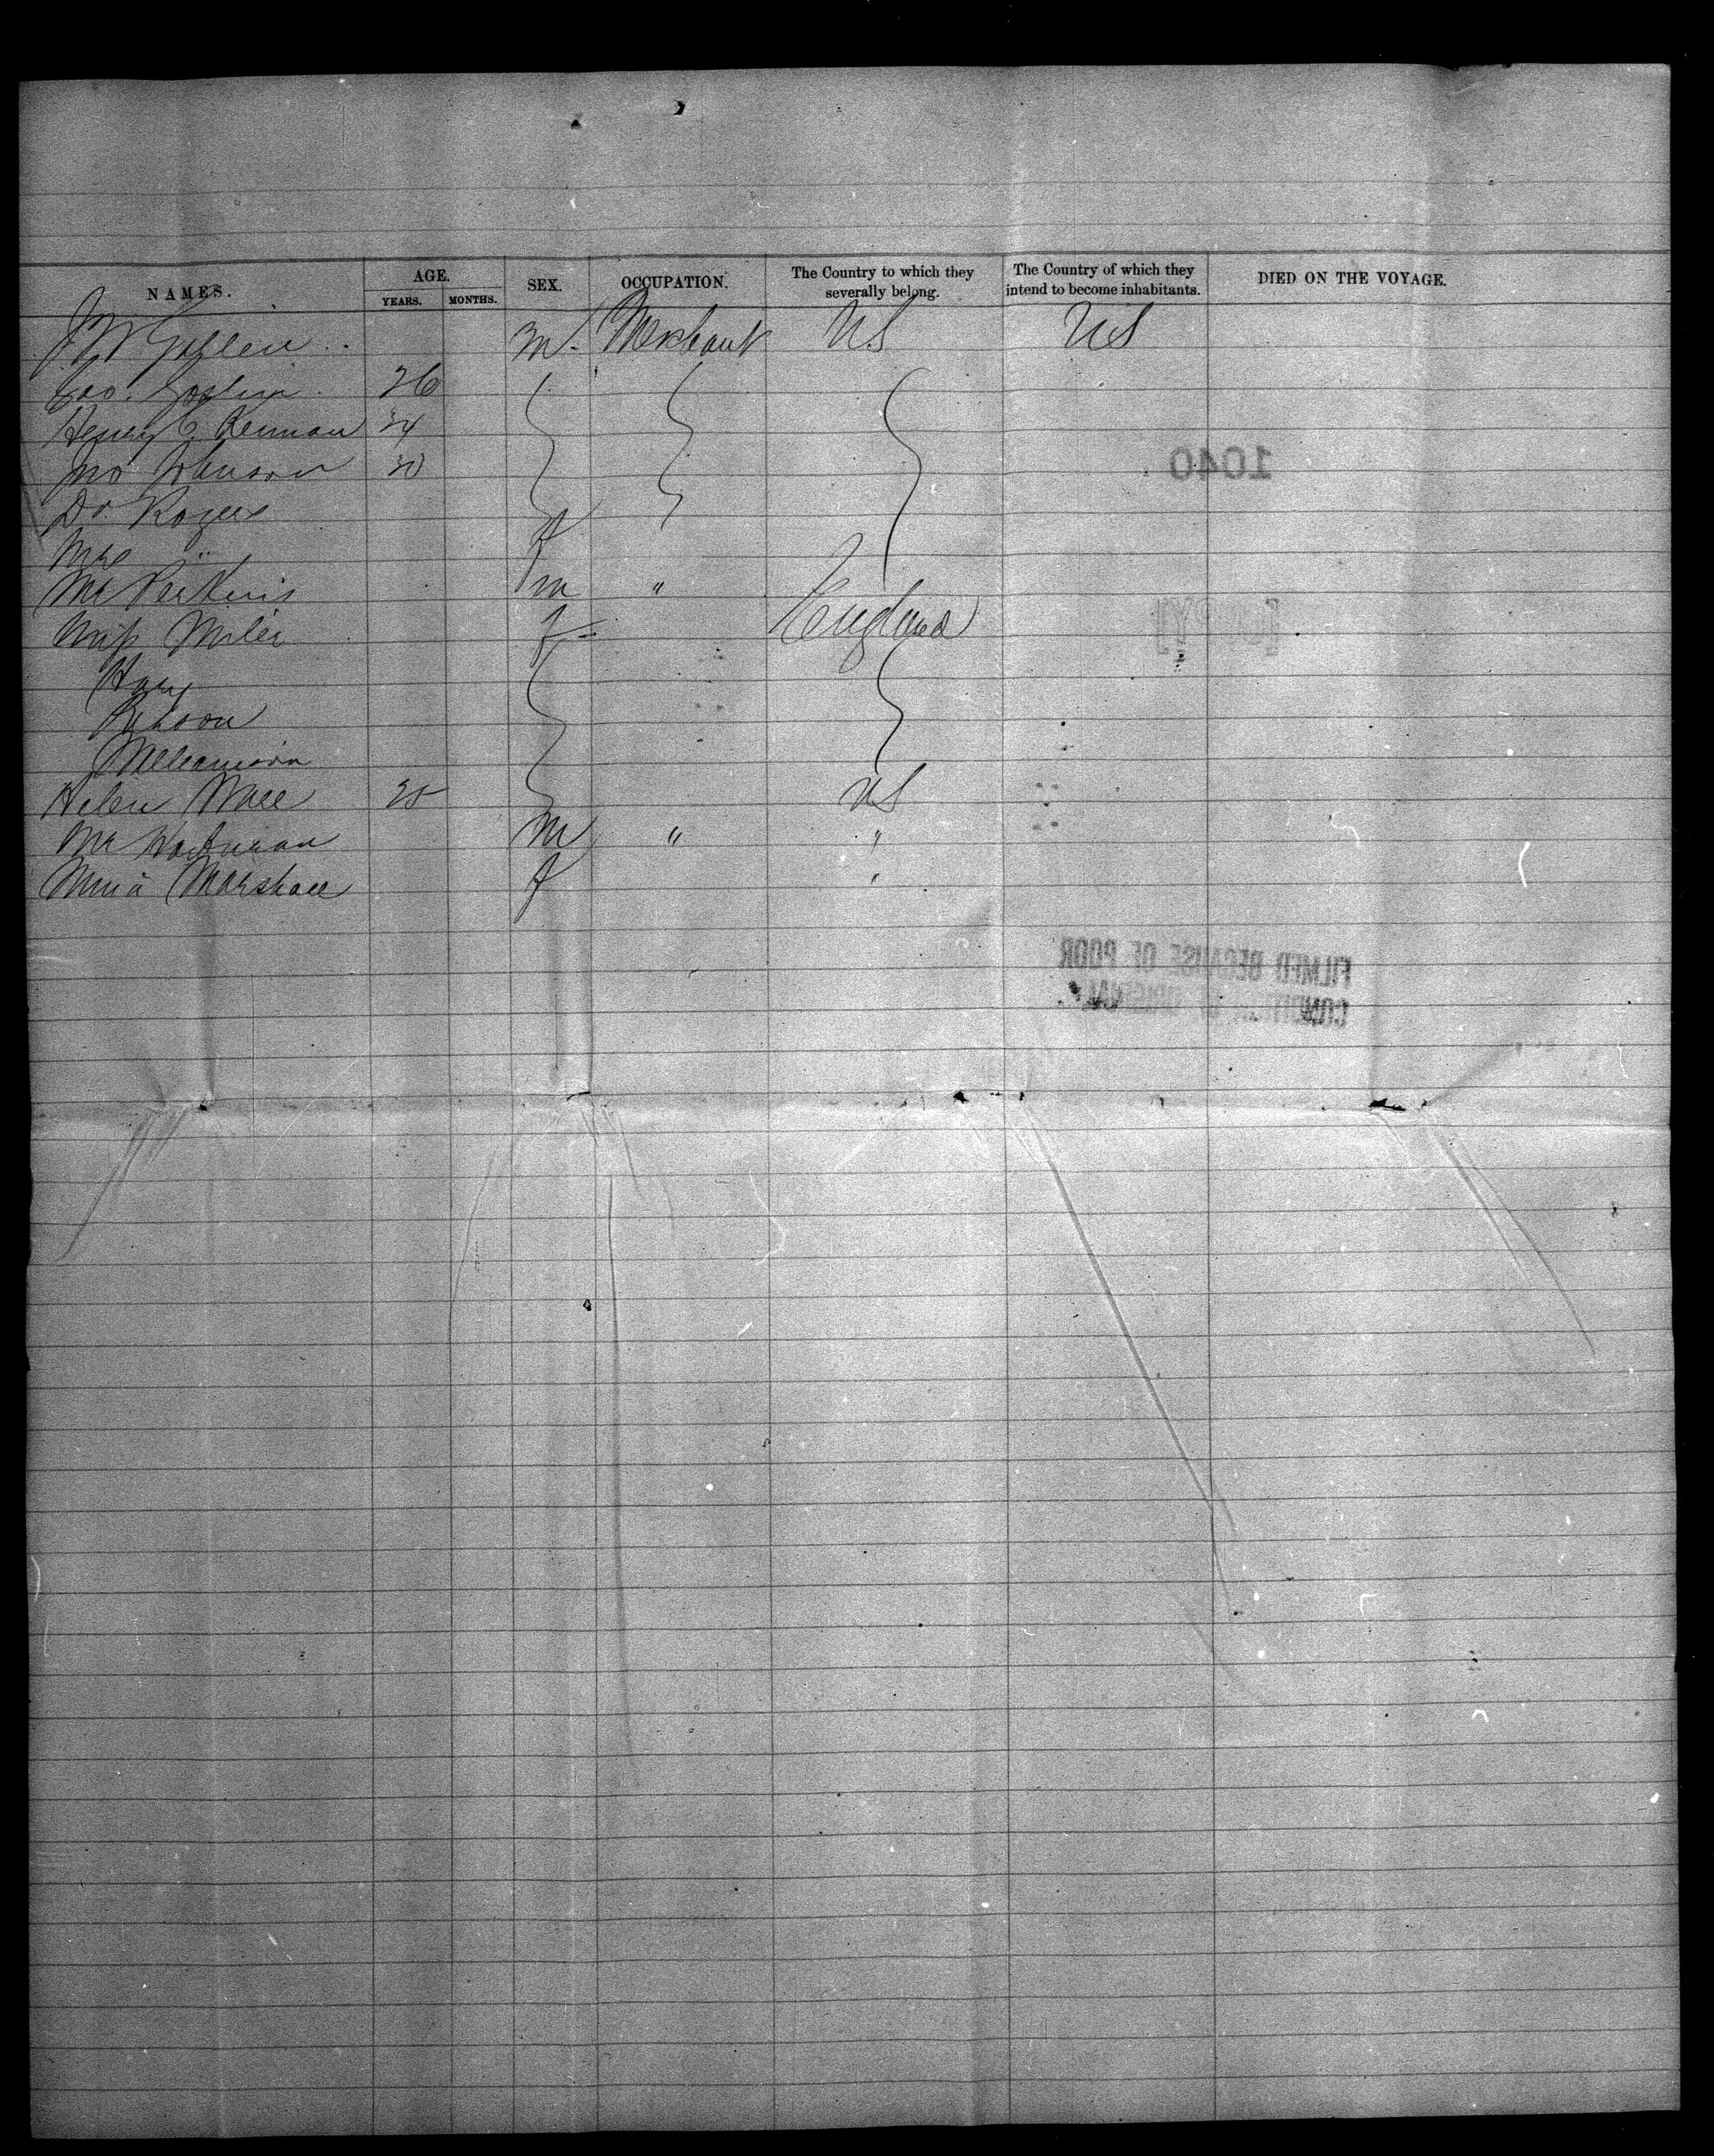 NAMES. AGE. YEARS. MONTHS. SEX. OCCUPATION. The Country to which they severally belong. The Country of which they intend to become inhabitants. DIED ON THE VOYAGE.
J W m. Merchant US US
26
Henry C. 34
Jno Johnson 30
Dr. Rogers
Mrs " f
Mr Perkins m "
Miss Miler f England
Hary
Helen 25 US
Mr Workman M " "
Marshall f "
1040
[COPY]
FILMED BECAUSE OF POOR
CONDITION OF ORIGINAL